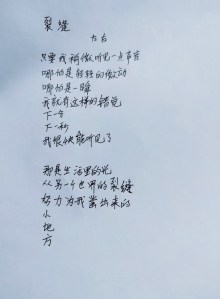 裂缝
左右
只要我稍微听见一点声音
哪怕是轻轻的微动
哪怕是一瞬
我就有这样的错觉
下一今
下一秒
我很快能听见了
那是生活里的光
从另一个世界的裂缝
努力为我凿出来的
小
地
方